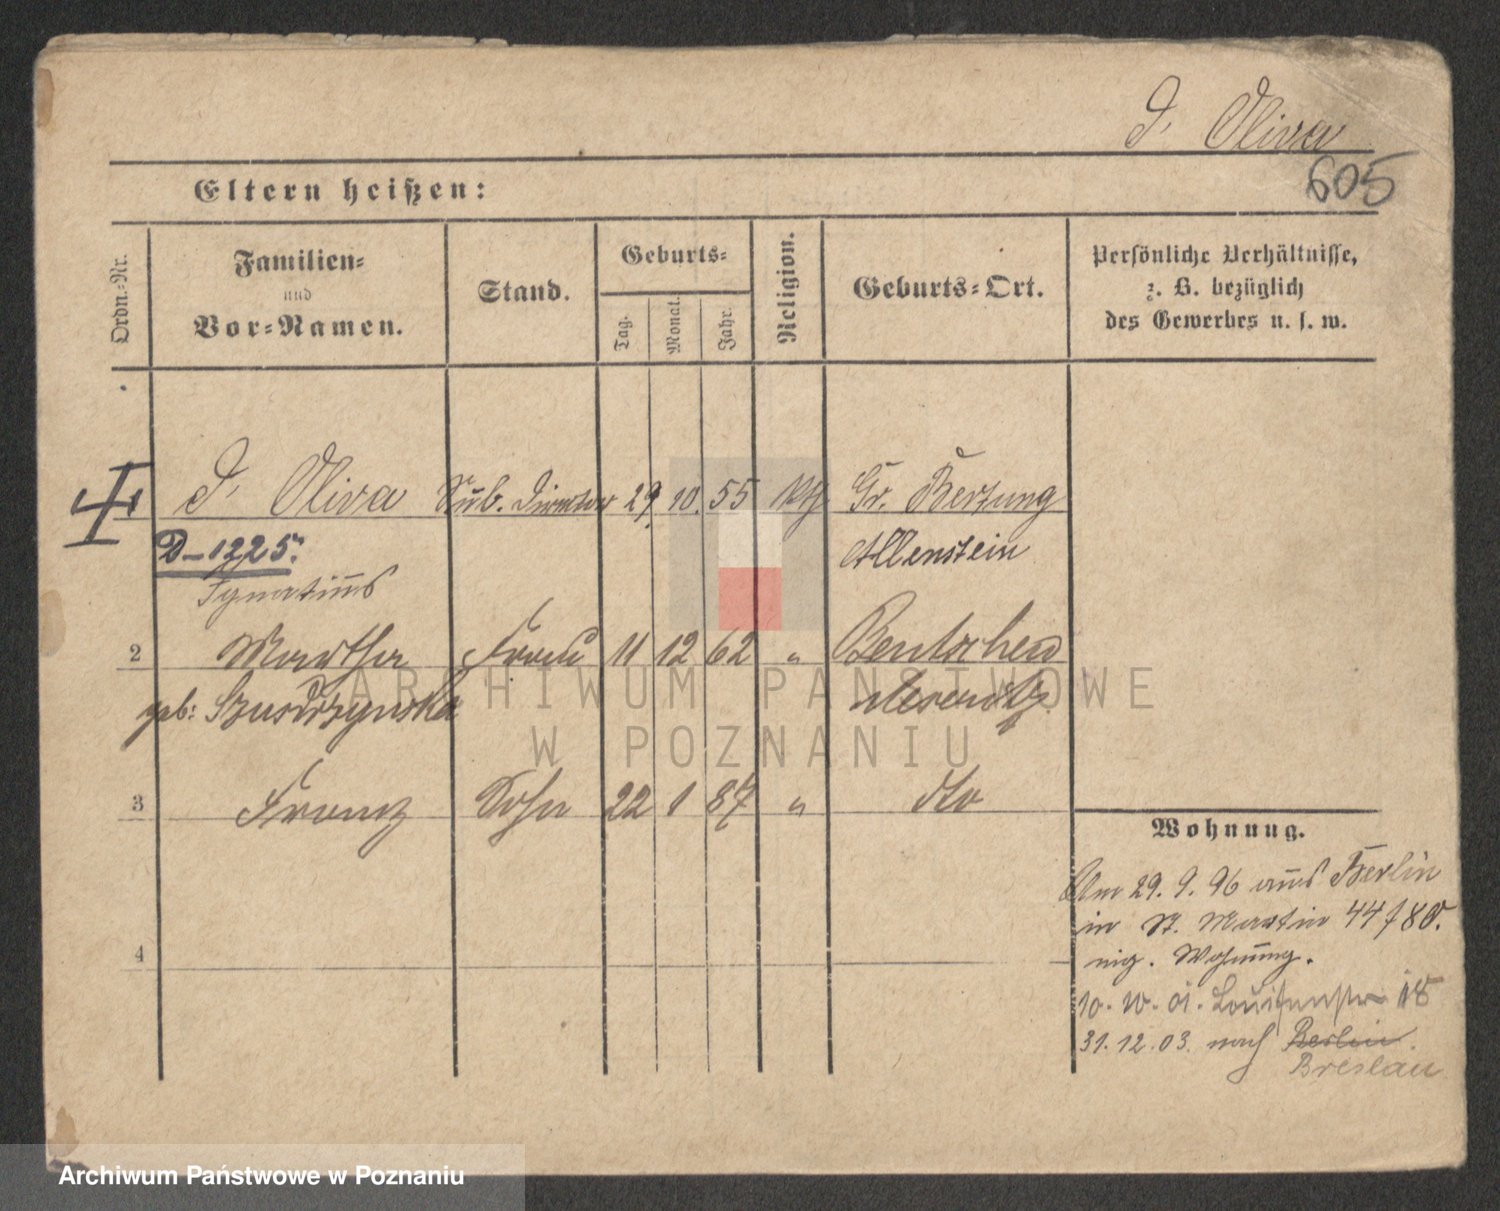 d' Oliva
605
Eltern heißen:
Ordn.-Nr.
Familien-
und
Vor-Namen.
Stand.
Geburts-
Tag.
Monat.
Jahr.
Religion.
Geburts-Ort.
Persönliche Verhältnisse,
z. B. bezüglich
des Gewerbes u. s. w.
1 d' Oliva Sub. Direktor 29. 10. 55 kth Gr. Bertung
D-1225. Allenstein
Ignatius
2 Martha Frau 11 12 62 " Bentschen
geb: Meseritz
3 Franz Sohn 22 1 87 " dto
4
Wohnung.
Am 29. 9. 96 aus Berlin
in St. Martin 44
Wohnung.
10. 10. 01. Louisenstr 18
31. 12. 03. nach Berlin.
Breslau
ARCHIWUM PAŃSTWOWE
W POZNANIU
Archiwum Państwowe w Poznaniu